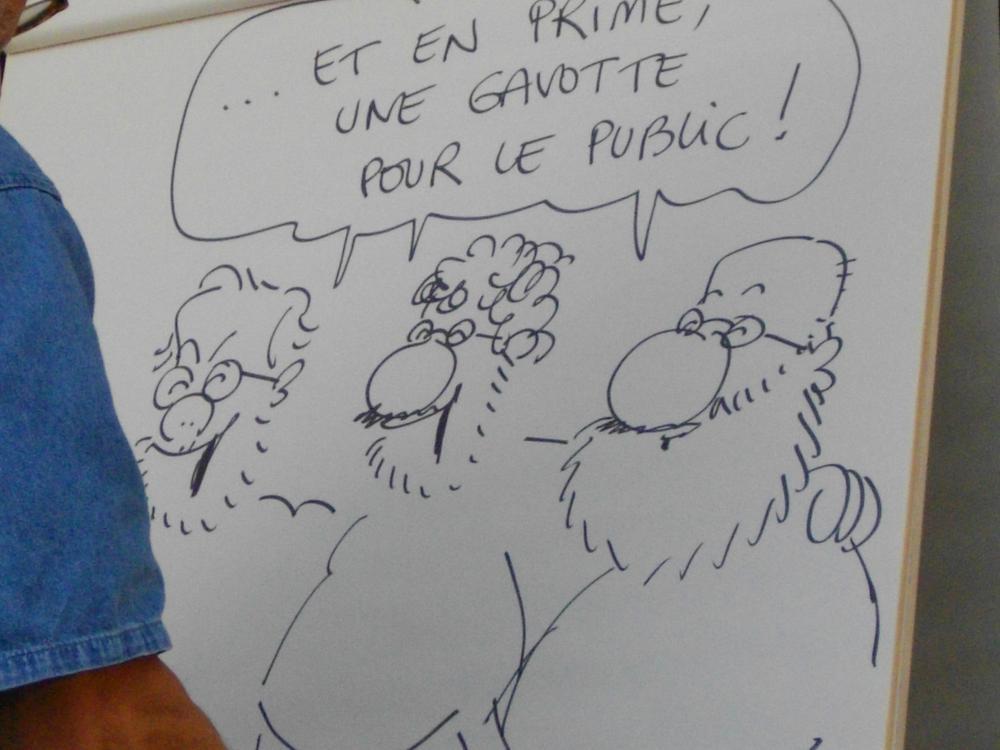 ... ET EN PRIME,
UNE GAVOTTE
POUR LE PUBLIC !